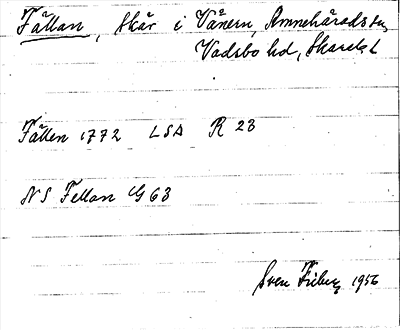 Fällan, Skär i Vänern, Amnehärads sn,
Vadsbo hd, Skarab. l
Fällen 1772 LSA R 23
NS Fellan G 63
Sven Friberg 1956